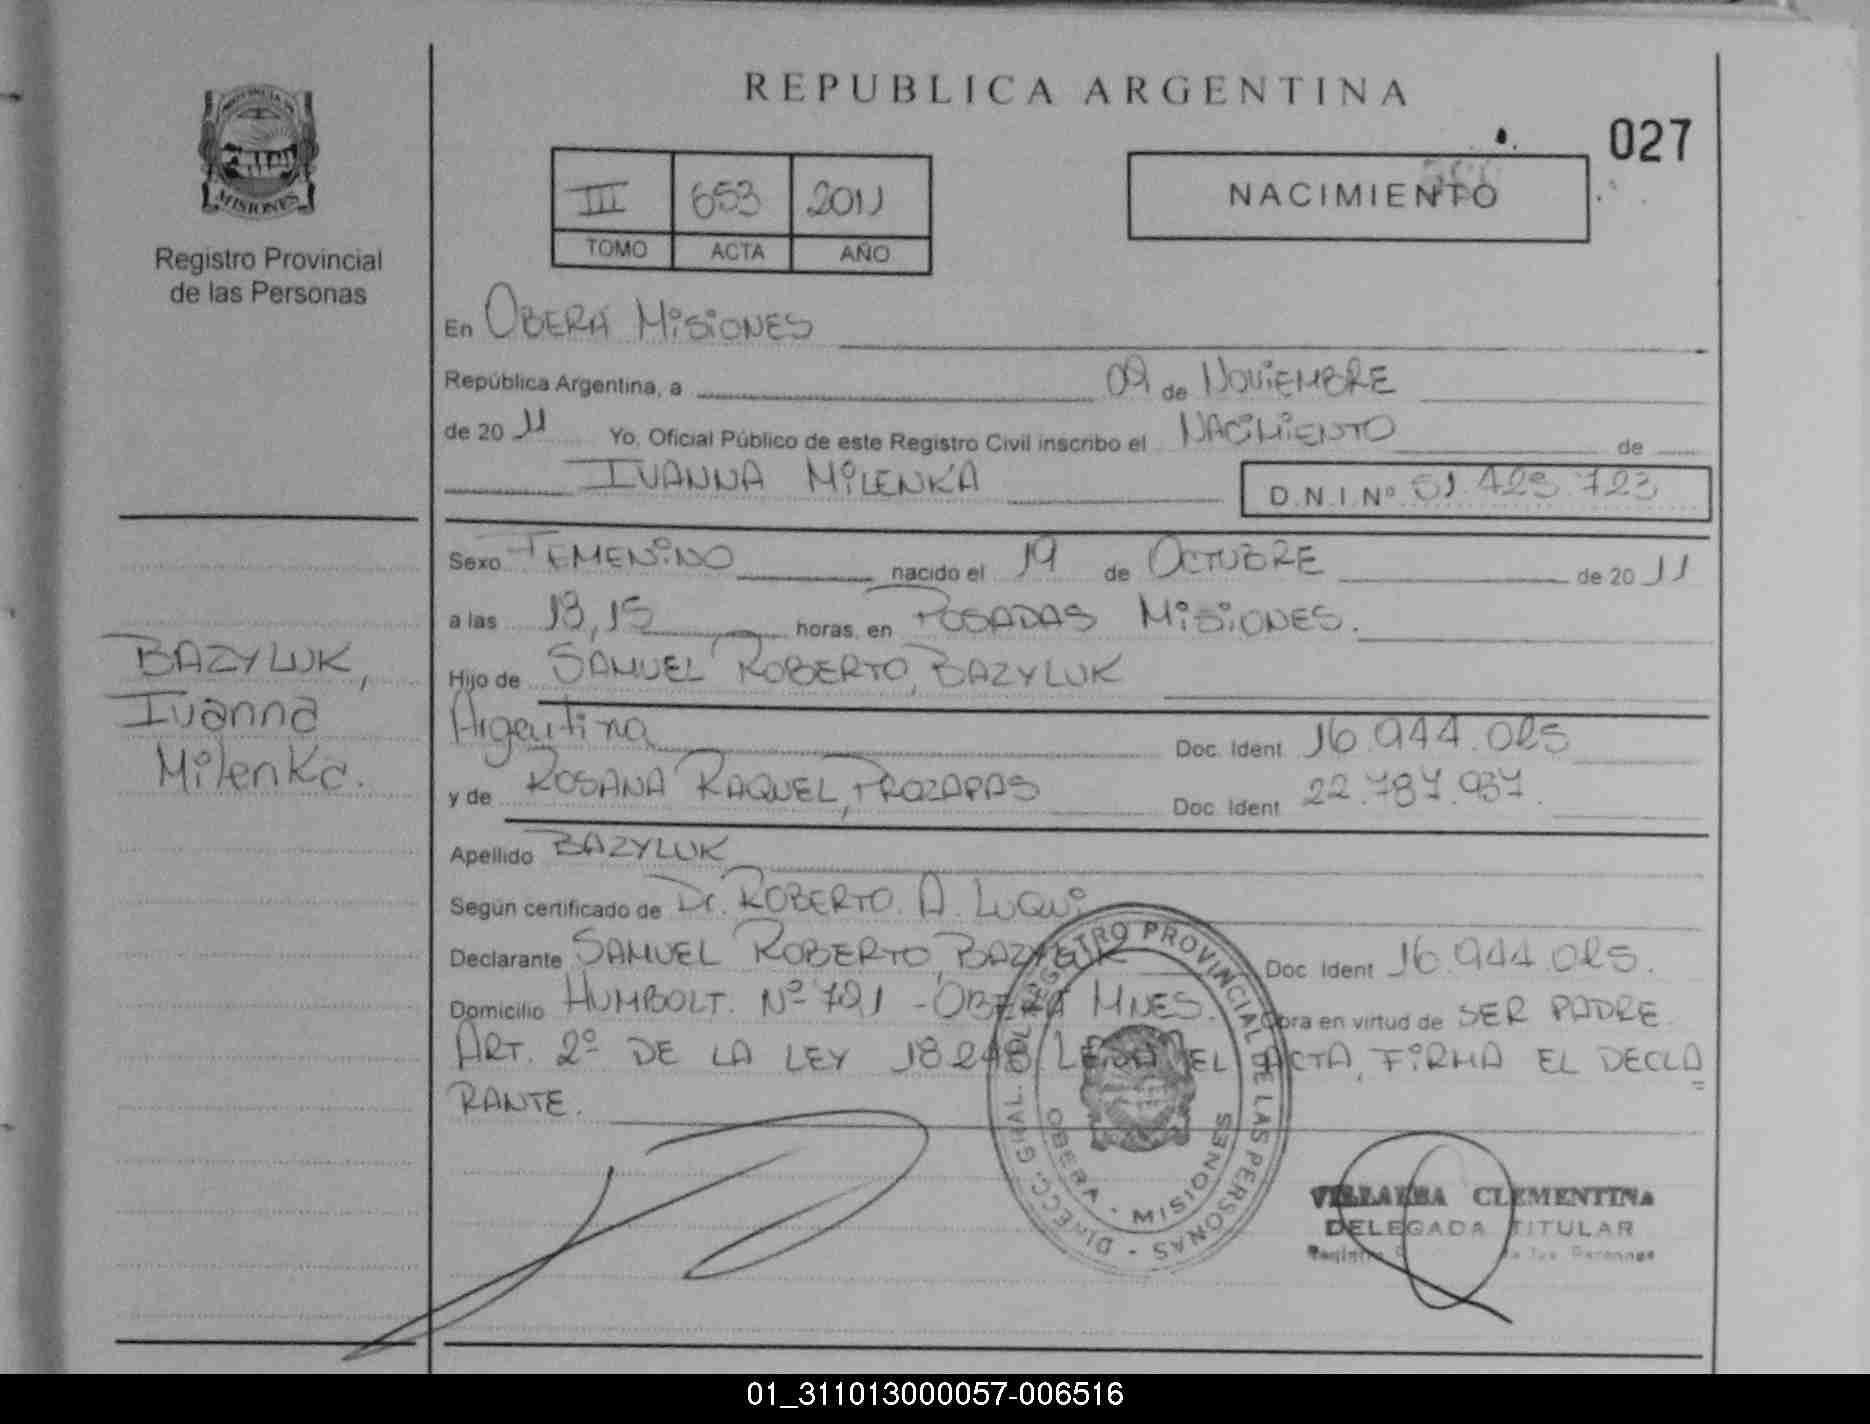 REPUBLICA ARGENTINA
027
PROVINCIA DE
MISIONES
Registro Provincial
de las Personas
III 653 2011
TOMO ACTA AÑO
NACIMIENTO
En OBERA MISIONES
República Argentina, a 09 de NOVIEMBRE
de 20 11 Yo, Oficial Público de este Registro Civil inscribo el NACIMIENTO de
IVANNA MILENKA D.N.I.Nº 51.423.723
Sexo FEMENINO nacido el 19 de OCTUBRE de 20 11
a las 13,15 horas, en POSADAS MISIONES.
Hijo de SAMUEL ROBERTO, BAZYLUK
Argentina Doc. Ident 16.944.025
y de ROSANA RAQUEL, PROZAPAS Doc. Ident 22.787.937.
Apellido BAZYLUK
Según certificado de Dr. ROBERTO. A. LUQUI
Declarante SAMUEL ROBERTO, BAZYLUK Doc Ident 16.944.025.
Domicilio HUMBOLT. Nº 791 - OBERA MNES. Obra en virtud de SER PADRE.
ART. 2º DE LA LEY 18248 LEIDA EL ACTA, FIRMA EL DECLA
RANTE.
BAZYLUK,
Ivanna
Milenka.
DIRECC. GRAL. DEL REGISTRO PROVINCIAL DE LAS PERSONAS -
OBERA - MISIONES
VILLALBA CLEMENTINA
DELEGADA TITULAR
Registro de las Personas
01_311013000057-006516